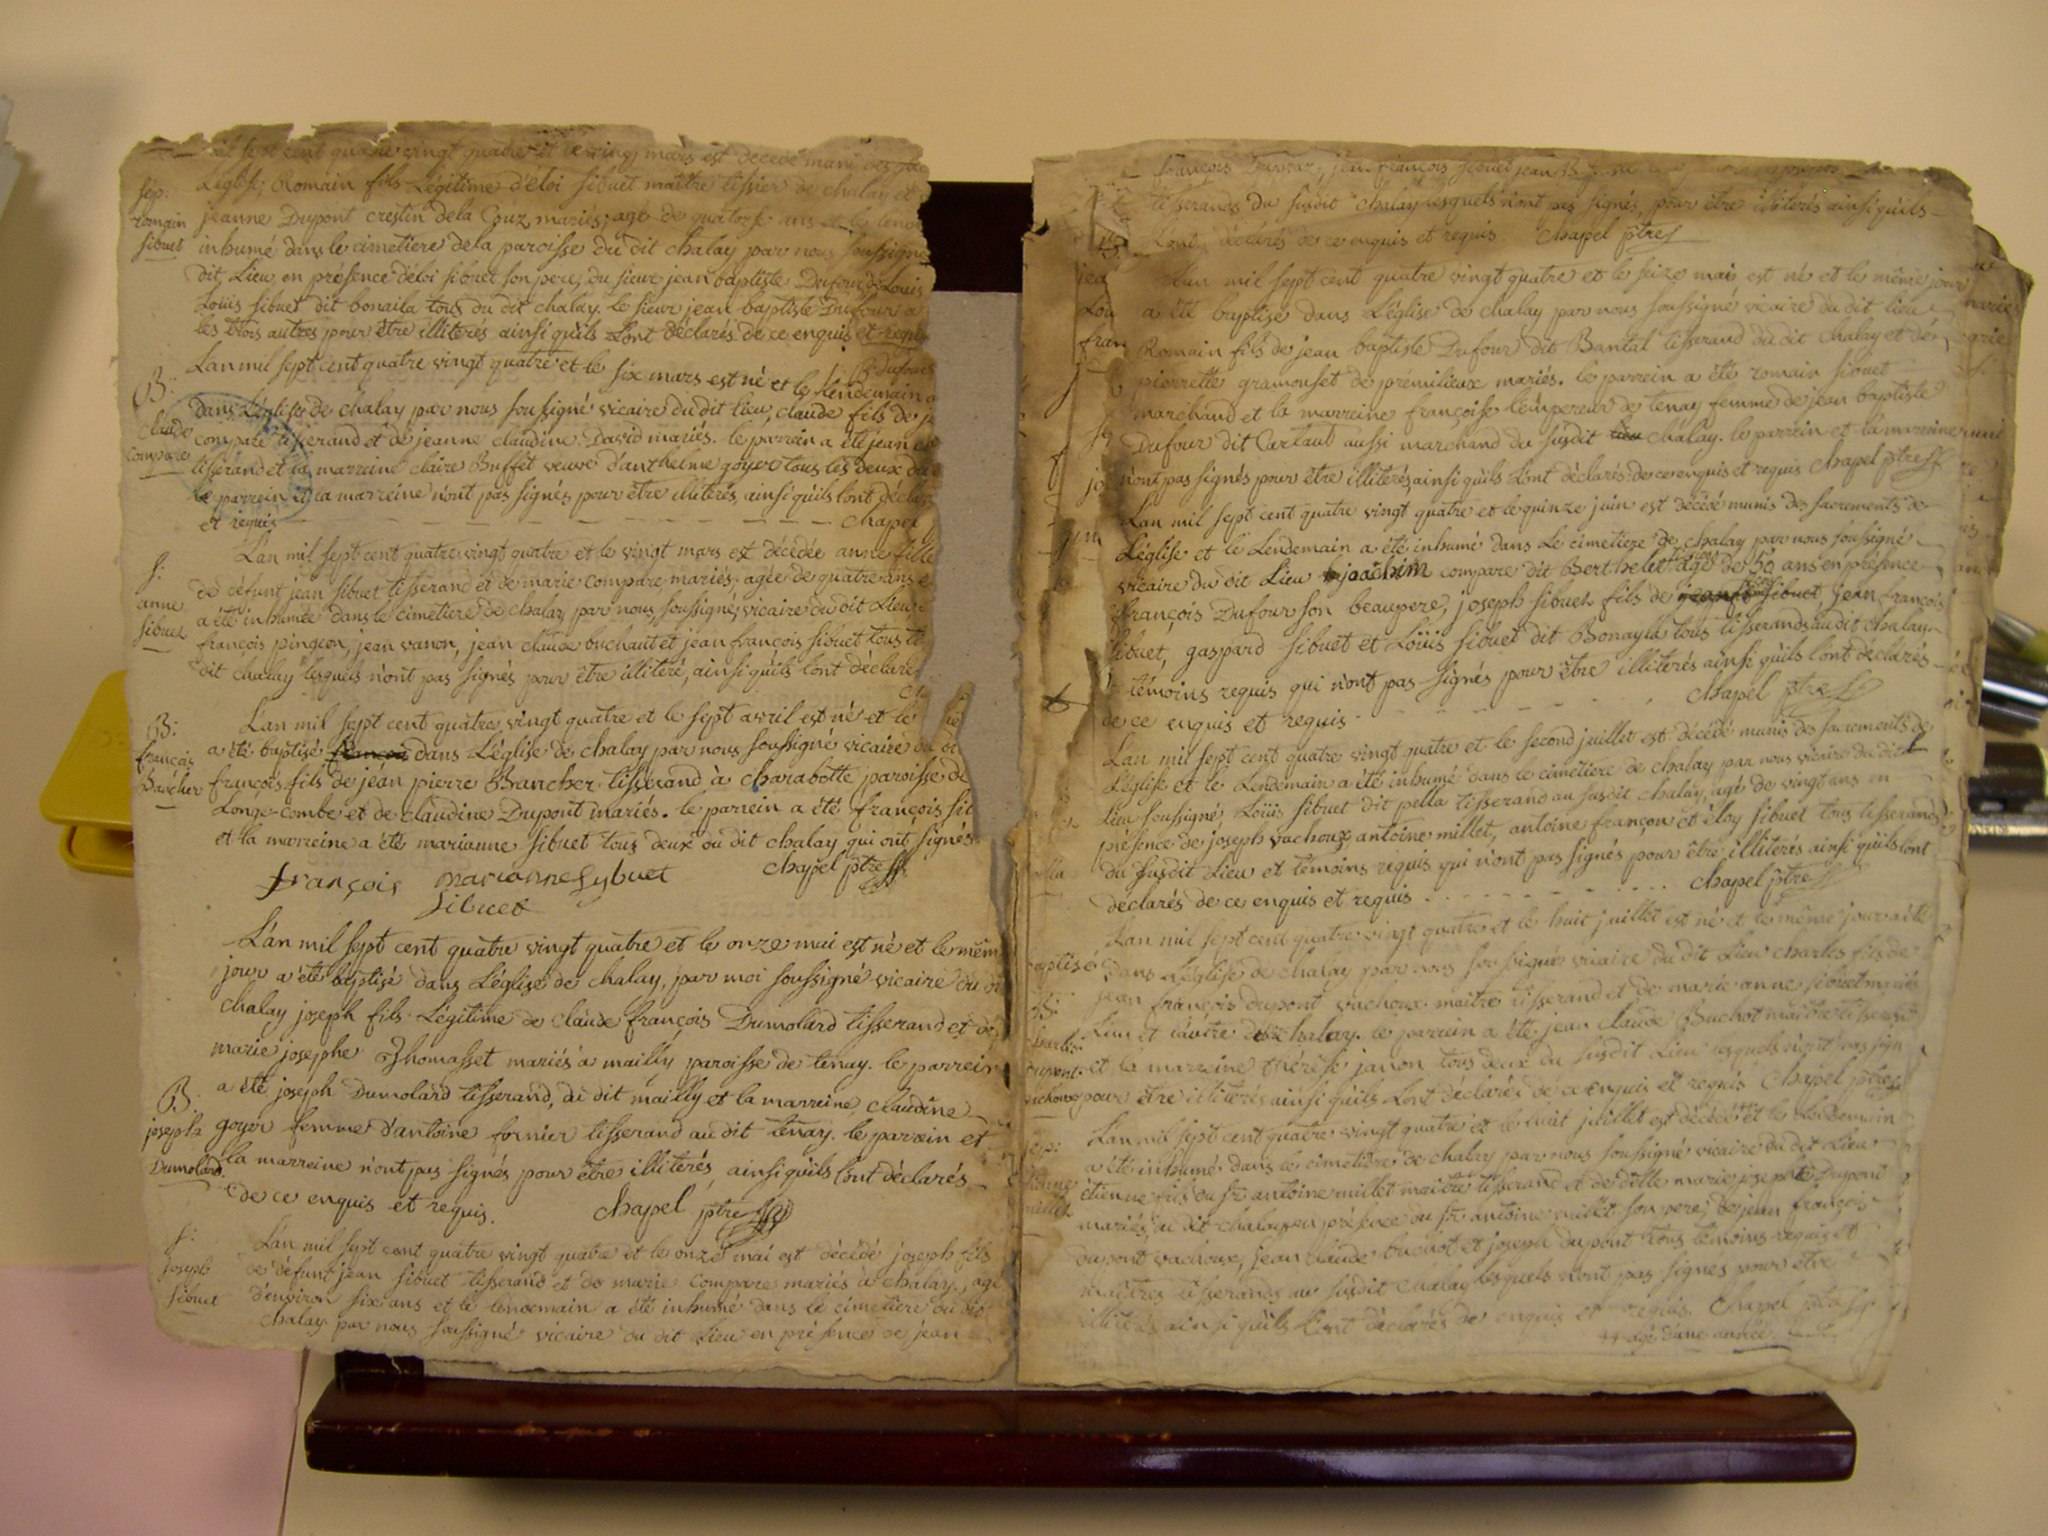 mil sept cent quatre vingt quatre et le cinq mars est décédé muni des
sép: L'église, Romain fils Légitime d'éloi sibuet maitre tissier de chalay et
romain jeanne Dupont crestin de la Couz, mariés, agé de quatorze ans et le lende
sibuet inhumé dans le cimetiere de la paroisse du dit chalay par nous soussigné
dit Lieu en présence d'éloi sibuet son pere, du sieur jean baptiste Dufour, de Louis
Louis sibuet dit bonaila tous du dit chalay. le sieur jean baptiste Dufour a
les trois autres pour être illiterés ainsi qu'ils L'ont déclarés de ce enquis et requis
Dufour
L'an mil sept cent quatre vingt quatre et le six mars est né et le lendemain a
B: dans L'église de chalay par nous soussigné vicaire du dit lieu, claude fils de je
claude compare tisserand et de jeanne claudine David mariés. le parrein a été jean
compare tisserand et la marreine claire Buffet veuve d'anthelme goyer tous les deux du
le parrein et la marreine n'ont pas signés pour être illiterés, ainsi qu'ils l'ont déclar
et requis chapel
L'an mil sept cent quatre vingt quatre et le vingt mars est décédée anne fille
S: de défunt jean sibuet tisserand et de marie compare mariés, agée de quatre ans e
anne a été inhumée dans le cimetiere de chalay par nous soussigné vicaire du dit Lieu
sibuet françois pingeon, jean vanon, jean claude buchaut et jean françois sibuet tous
dit chalay lesquels n'ont pas signés pour être illiteré, ainsi qu'ils l'ont déclarés
B: L'an mil sept cent quatre vingt quatre et le sept avril est né et le
françois a été baptisé françois dans L'église de chalay par nous soussigné vicaire du di
Bancher françois fils de jean pierre Brancher tisserand à charabotte paroisse de
Longe-combe et de claudine Dupont mariés. le parrein a été françois sib
et la marreine a été marianne sibuet tous deux du dit chalay qui ont signés
françois marianne sybuet chapel ptre
sibuet
L'an mil sept cent quatre vingt quatre et le onze mai est né et le mêm
jour a été baptisé dans L'église de chalay, par moi soussigné vicaire du di
chalay joseph fils Légitime de claude françois Dumolard tisserand et de
marie josephe Thomasset mariés à mailly paroisse de tenay. le parrein
B: a été joseph Dumolard tisserand, du dit mailly et la marreine claudine
joseph goyer femme d'antoine fornier tisserand au dit tenay. le parrein et
Dumolard la marreine n'ont pas signés pour être illiterés, ainsi qu'ils l'ont déclarés
de ce enquis et requis. chapel ptre
S: L'an mil sept cent quatre vingt quatre et le onze mai est décédé joseph fils
joseph de défunt jean sibuet tisserand et de marie compare mariés à chalay, agé
sibuet d'environ six ans et le lendemain a été inhumé dans le cimetiere du dit
chalay par nous soussigné vicaire du dit Lieu en présence de jean
françois jean françois sibuet jean
tisserands du susdit chalay lesquels n'ont pas signés, pour être illiterés ainsi qu'ils
L'ont déclarés de ce enquis et requis chapel ptre
L'an mil sept cent quatre vingt quatre et le seize mai est né et le même jour
a été baptisé dans L'église de chalay par nous soussigné vicaire du dit lieu
Romain fils de jean baptiste Dufour dit Bantal tisserand du dit chalay et de
pierrette gramouset de prémilieux mariés. le parrein a été romain sibuet
marchand et la marreine françoise l'empereur de tenay femme de jean baptiste
Dufour dit Cartaut aussi marchand du susdit lieu chalay. le parrein et la marreine
n'ont pas signés pour être illiterés, ainsi qu'ils L'ont déclarés de ce enquis et requis chapel ptre
L'an mil sept cent quatre vingt quatre et le quinze juin est décédé munis des sacrements de
L'église et le Lendemain a été inhumé dans Le cimetiere de chalay par nous soussigné
vicaire du dit Lieu joachim compare dit Berthelet agé de 50 ans en présence
françois Dufour son beaupere, joseph sibuet fils de jean françois
sibuet, gaspard sibuet et Loüis sibuet dit Bonayla tous tisserands audit chalay
témoins requis qui n'ont pas signés pour être illiterés ainsi qu'ils l'ont déclarés
de ce enquis et requis chapel ptre
L'an mil sept cent quatre vingt quatre et le second juillet est décédé munis des sacrements de
L'église et le Lendemain a été inhumé dans le cimetiere de chalay par nous vicaire du dit
Lieu soussigné, Loüis sibuet dit pella tisserand au susdit chalay, agé de vingt ans en
présence de joseph vachoux antoine millet, antoine françon et éloy sibuet tous tisserands
du susdit Lieu et témoins requis qui n'ont pas signés pour être illiterés ainsi qu'ils l'ont
déclarés de ce enquis et requis chapel ptre
L'an mil sept cent quatre vingt quatre et le huit juillet est né et le même jour a été
baptisé dans L'église de chalay par nous soussigné vicaire du dit Lieu charles fils de
B: jean françois dupont vachoux maitre tisserand et de marie anne sibuet mariés
charles L'un et l'autre de chalay. le parrein a été jean claude Buchot maitre tisserand
dupont et la marreine thérèse janon tous deux du susdit Lieu lesquels n'ont pas sign
vachoux pour être illiterés ainsi qu'ils L'ont déclarés de ce enquis et requis chapel ptre
L'an mil sept cent quatre vingt quatre et le huit juillet est décédé et le Lendemain
sép: a été inhumé dans le cimetiere de chalay par nous soussigné vicaire du dit Lieu
étienne étienne fils du sr antoine millet maitre tisserand et de dlle marie josephte Dupont
millet mariés, du dit chalay en présence du sr antoine millet son pere, de jean françois
dupont vachoux, jean claude buchot et joseph dupont tous témoins requis et
maitres tisserands au susdit chalay lesquels n'ont pas signés pour être
illiterés ainsi qu'ils L'ont déclarés de enquis et requis. chapel ptre
agé d'une année